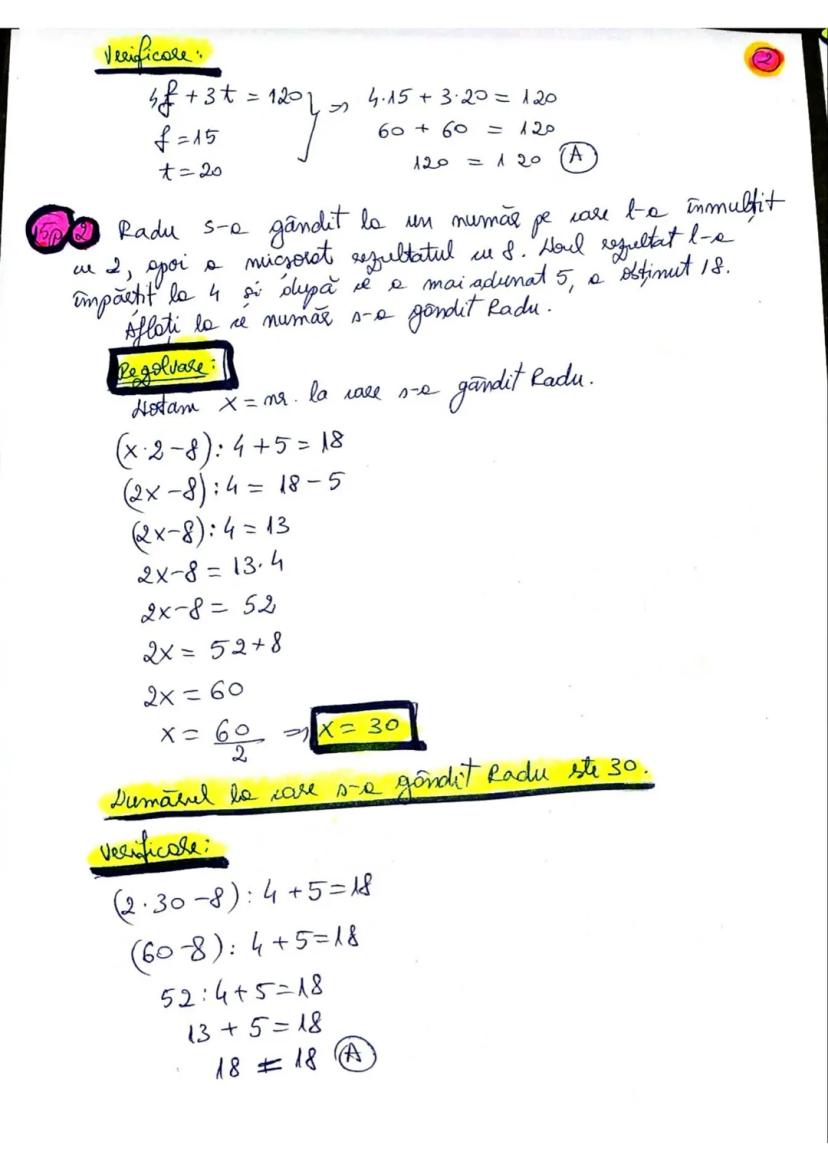 Verificare:
2
4f + 3t = 120 } ⇒ 4·15 + 3·20 = 120
f = 15
60 + 60 = 120
t = 20
120 = 120 (A)
15p 2 Radu s-a gândit la un număr pe care l-a înmulțit
cu 2, apoi a micșorat rezultatul cu 8. Noul rezultat l-a
împărțit la 4 și după ce a mai adunat 5, a obținut 18.
Aflați la ce număr s-a gândit Radu.
Rezolvare:
Notam x = nr. la care s-a gândit Radu.
(x·2-8):4+5=18
(2x-8):4 = 18-5
(2x-8):4 = 13
2x-8 = 13·4
2x-8 = 52
2x = 52+8
2x = 60
x = 60/2 ⇒ x = 30
Numărul la care s-a gândit Radu este 30.
Verificare:
(2·30-8):4+5=18
(60-8):4+5=18
52:4+5=18
13+5=18
18 = 18 (A)